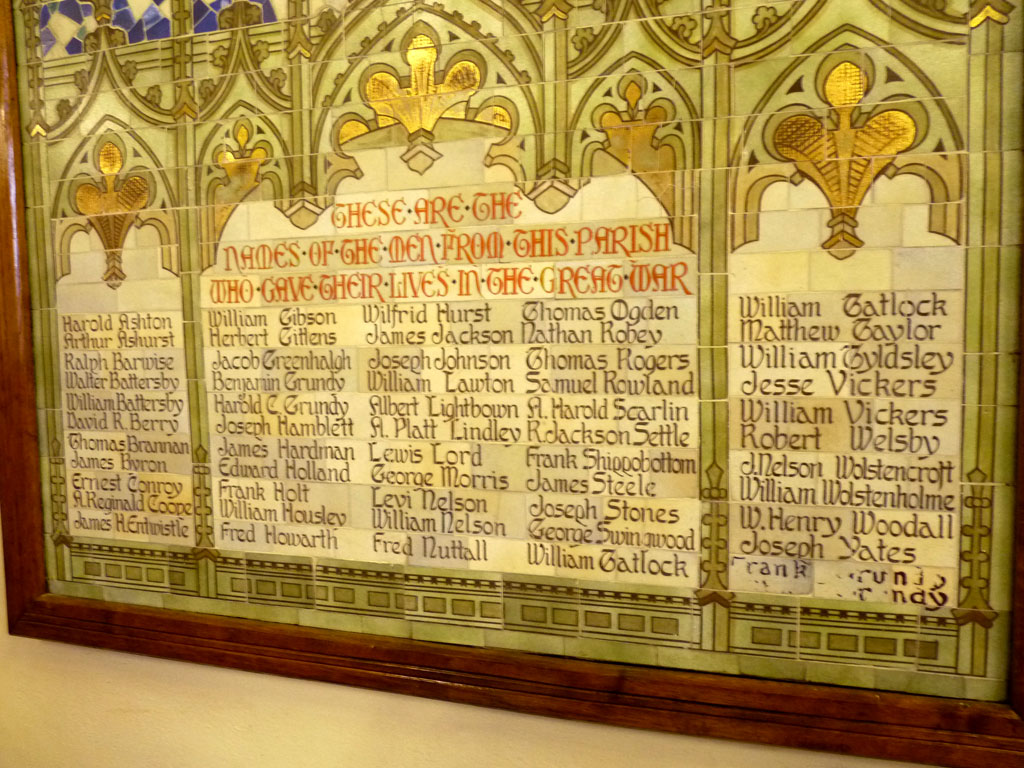 THESE·ARE·THE
NAMES·OF·THE·MEN·FROM·THIS·PARISH
WHO·GAVE·THEIR·LIVES·IN·THE·GREAT·WAR
Harold Ashton
Arthur Ashurst
Ralph Barwise
Walter Battersby
William Battersby
David R. Berry
Thomas Brannan
James Byron
Ernest Conroy
A. Reginald Coope
James H. Entwistle
William Gibson
Herbert Gittens
Jacob Greenhalgh
Benjamin Grundy
Harold C. Grundy
Joseph Hamblett
James Hardman
Edward Holland
Frank Holt
William Housley
Fred Howarth
Wilfrid Hurst
James Jackson
Joseph Johnson
William Lawton
Albert Lightbown
A. Platt Lindley
Lewis Lord
George Morris
Levi Nelson
William Nelson
Fred Nuttall
Thomas Ogden
Nathan Robey
Thomas Rogers
Samuel Rowland
A. Harold Scarlin
R. Jackson Settle
Frank Shippobottom
James Steele
Joseph Stones
George Swingwood
William Tatlock
William Tatlock
Matthew Taylor
William Tyldsley
Jesse Vickers
William Vickers
Robert Welsby
J. Nelson Wolstencroft
William Wolstenholme
W. Henry Woodall
Joseph Yates
Frank